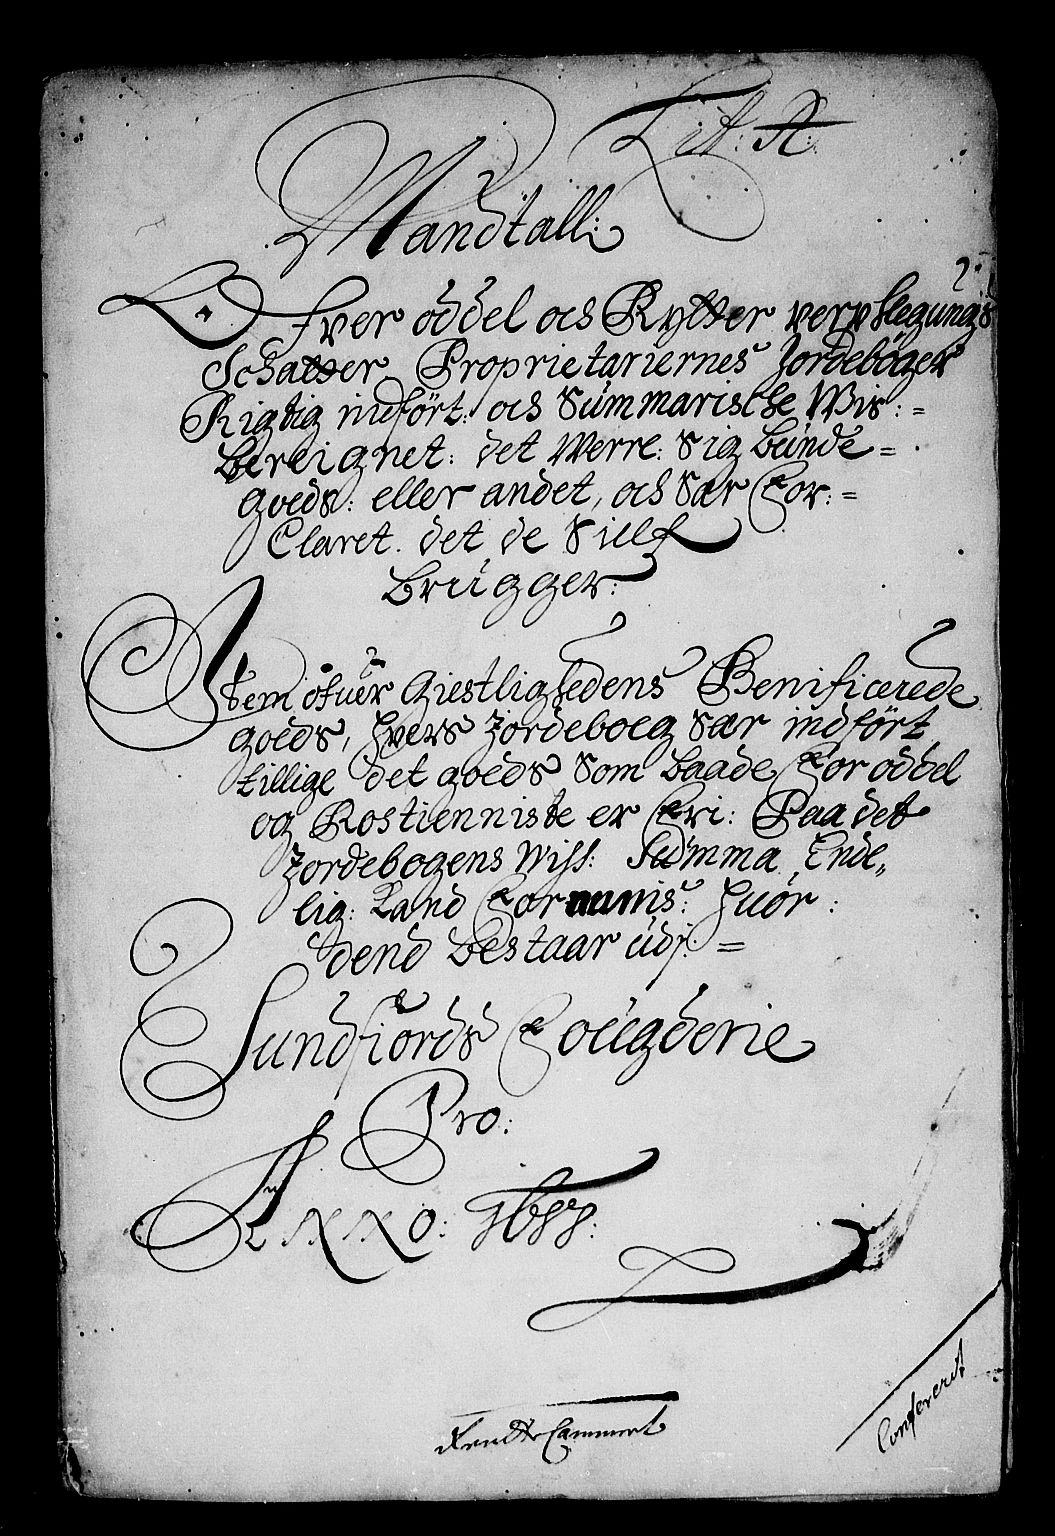 Lit: A:
Mandtall:
Ofver oddel och Rytter verpflegungs
Schatter Proprietariernes Jordebøger
Rigtig indfört: och Summarische Wis:=
bereignet: det Werre: Sig bünde=
goeds: eller andet, och Sær For:=
Claret. det de Sillf
brügger:
Item öfuer Giestlighedens Benificerede
goeds, hvers Jordeboeg Sær indfört
tillige det goeds Som baade For oddel
og Rostienniste er Fri: Paa det
Jordebogens Wiss: Summa, Ende„
lig: Kand Fornumis: huor:
dend bestaar udj. =
Sundfiords Fougderie
Pro:
Anno: 1688:
RendteCammert
Confererit